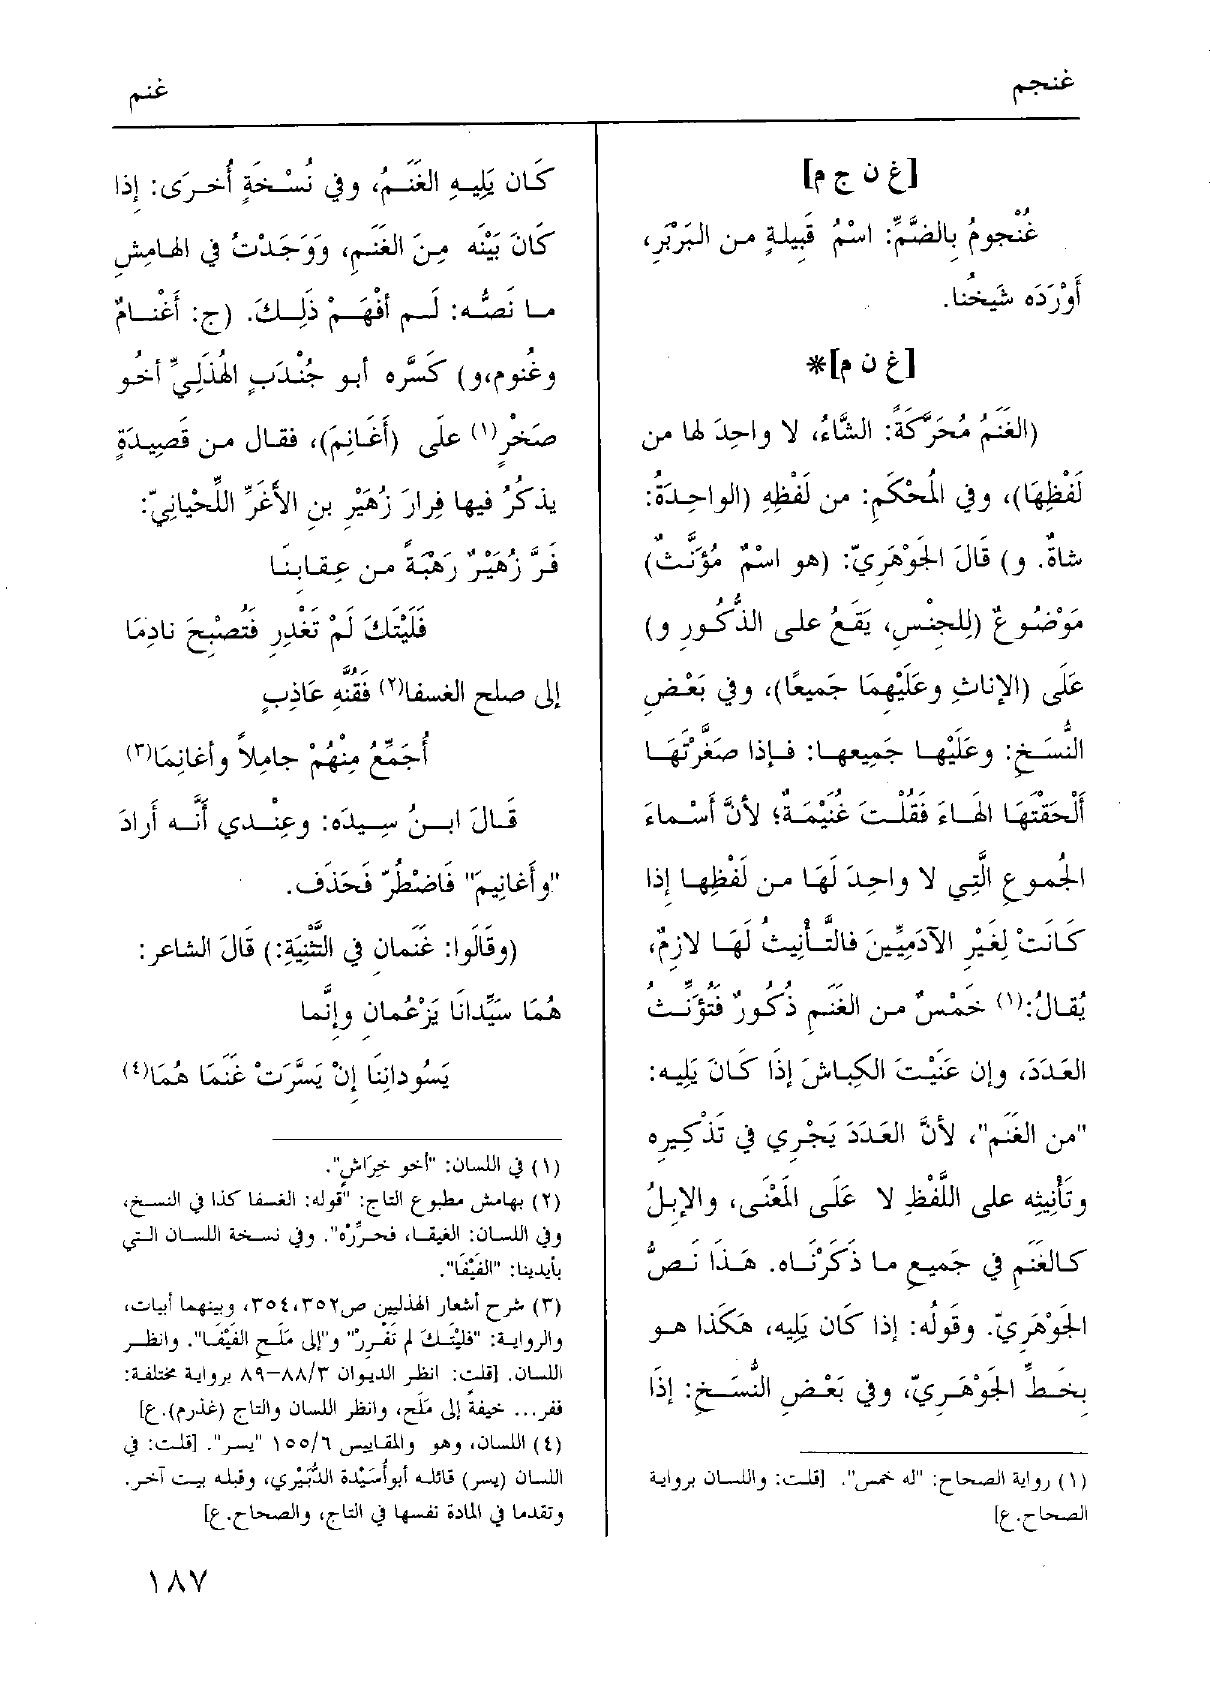 غنجم
غنم
[غ ن ج م]
غُنْجومُ بِالضَّمِّ: اسْمُ قَبِيلةٍ من البَرْبَرِ،
أَوْرَدَه شَيخُنا.
[غ ن م]*
(الغَنَمُ مُحَرَّكَةً: الشَّاءُ، لا واحِدَ لها من
لَفْظِهَا)، وفي المُحْكَمِ: من لَفْظِهِ (الواحِدَةُ:
شاةٌ. و) قَالَ الجَوْهَرِيّ: (هو اسْمٌ مُؤَنَّثٌ)
مَوْضُوعٌ (لِلجِنْسِ، يَقَعُ على الذُّكُورِ و)
عَلَى (الإناثِ وعَلَيْهِمَا جَمِيعًا)، وفي بَعْضِ
النُّسَخِ: وعَلَيْها جَمِيعِها: فإذا صَغَّرْتَهَا
أَلْحَقتَها الهَاءَ فَقُلْتَ غُنَيْمَةٌ؛ لأنَّ أَسْماءَ
الجُموعِ الَّتِي لا واحِدَ لَهَا من لَفْظِها إذا
كَانَتْ لِغَيْرِ الآدَمِيِّينَ فالتَّأنِيثُ لَهَا لازِمٌ،
يُقالُ:(١) خَمْسٌ من الغَنَمِ ذُكُورٌ فَتُؤَنَّثُ
العَدَدَ، وإن عَنَيْتَ الكِباشَ إذَا كَانَ يَلِيه:
"من الغَنَمِ"، لأنَّ العَدَدَ يَجْرِي في تَذْكِيرِه
وتَأنِيثِه على اللَّفْظِ لا عَلَى المَعْنَى، والإبِلُ
كالغَنَمِ في جَمِيعِ ما ذَكَرْنَاه. هَذَا نَصُّ
الجَوْهَرِيّ. وقولُه: إذا كَان يَلِيه، هَكَذا هو
بِخَطِّ الجَوْهَرِيّ، وفي بَعْضِ النُّسَخِ: إذا
(١) رواية الصحاح: "له خمس". [قلت: واللسان برواية
الصحاح. ع]
كَان يَلِيهِ الغَنَمُ، وفي نُسْخَةٍ أُخرَى: إذا
كَانَ بَيْنَه مِنَ الغَنَمِ، وَوَجَدْتُ في الهامِشِ
ما نَصُّه: لَم أَفْهَمْ ذَلِكَ. (ج: أَغْنامٌ
وغُنوم،و) كَسَّره أبو جُنْدَبٍ الهُذَلِيِّ أخُو
صَخْرٍ(١) علَى (أَغَانِمَ)، فقال من قَصِيدَةٍ
يذكُرُ فيها فِرارَ زُهَيْرِ بنِ الأَغَرِّ اللِّحْيانِيّ:
فَرَّ زُهَيْرٌ رَهْبَةً من عِقابنَا
فَلَيْتَكَ لَمْ تَغْدِرِ فَتُصْبِحَ نادِمَا
إلى صلح الغسفا(٢) فَقُنَّهِ عَاذِبٍ
أُجَمِّعُ مِنْهُمْ جامِلاً وأغانِمَا(٣)
قَالَ ابنُ سِيدَه: وعِنْدي أَنَّه أَرادَ
"وأَغانِيمَ" فَاضْطُرّ فَحَذَف.
(وقَالَوا: غَنَمان في التَّثْنِيَةِ:) قَالَ الشاعر:
هُمَا سَيِّدانَا يَزْعُمان وإنَّما
يَسُودانِنَا إنْ يَسَّرَتْ غَنَمَا هُمَا(٤)
(١) في اللسان: "أخو خِرَاش".
(٢) بهامش مطبوع التاج: "قوله: الغسفا كذا في النسخ،
وفي اللسان: الغيقا، فحرِّرْه". وفي نسخة اللسان التي
بأيدينا: "الفَيْفَا".
(٣) شرح أشعار الهذليين ص٣٥٢،٣٥٤، وبينهما أبيات،
والرواية: "فليْتَكَ لم تَفْرِرْ" و"إلى مَلَحِ الفَيْفَا". وانظر
اللسان. [قلت: انظر الديوان ٨٨/٣–٨٩ برواية مختلفة:
ففر... خيفةً إلى مَلَح، وانظر اللسان والتاج (غذرم). ع]
(٤) اللسان، وهو والمقاييس ١٥٥/٦ "يسر". [قلت: في
اللسان (يسر) قائله أبوأُسَيْدة الدُّبَيْري، وقبله بيت آخر.
وتقدما في المادة نفسها في التاج، والصحاح. ع]
١٨٧